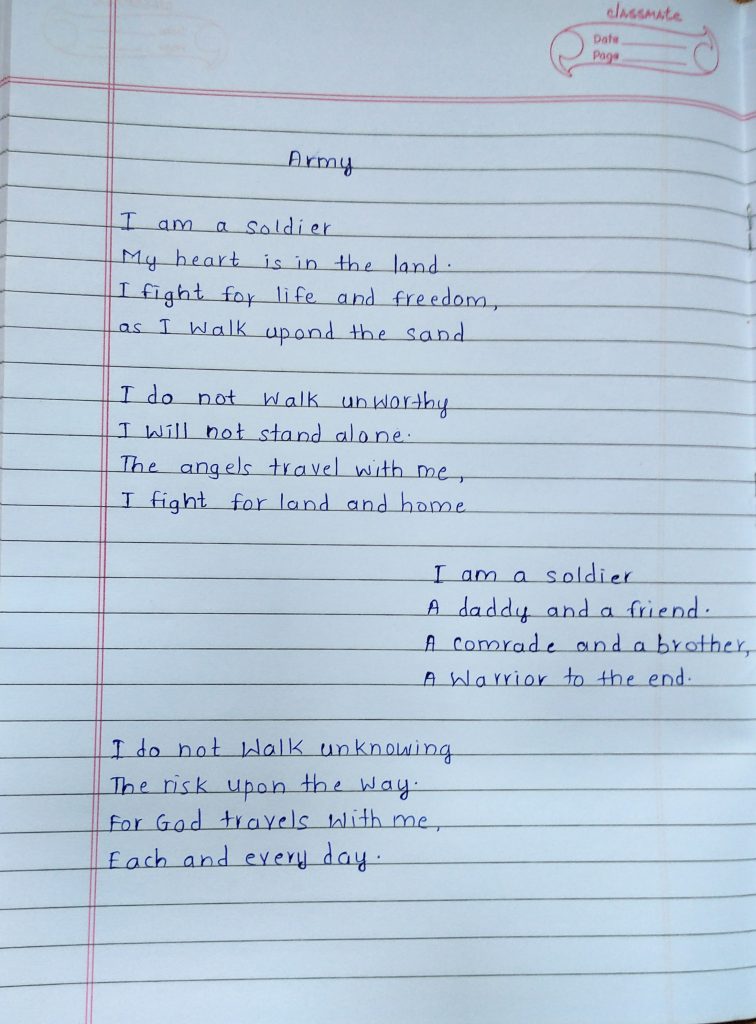 classmate
Date
Page
Army
I am a soldier
My heart is in the land.
I fight for life and freedom,
as I walk upond the sand
I do not walk unworthy
I will not stand alone.
The angels travel with me,
I fight for land and home
I am a soldier
A daddy and a friend.
A comrade and a brother,
A warrior to the end.
I do not walk unknowing
The risk upon the way.
For God travels with me,
Each and every day.